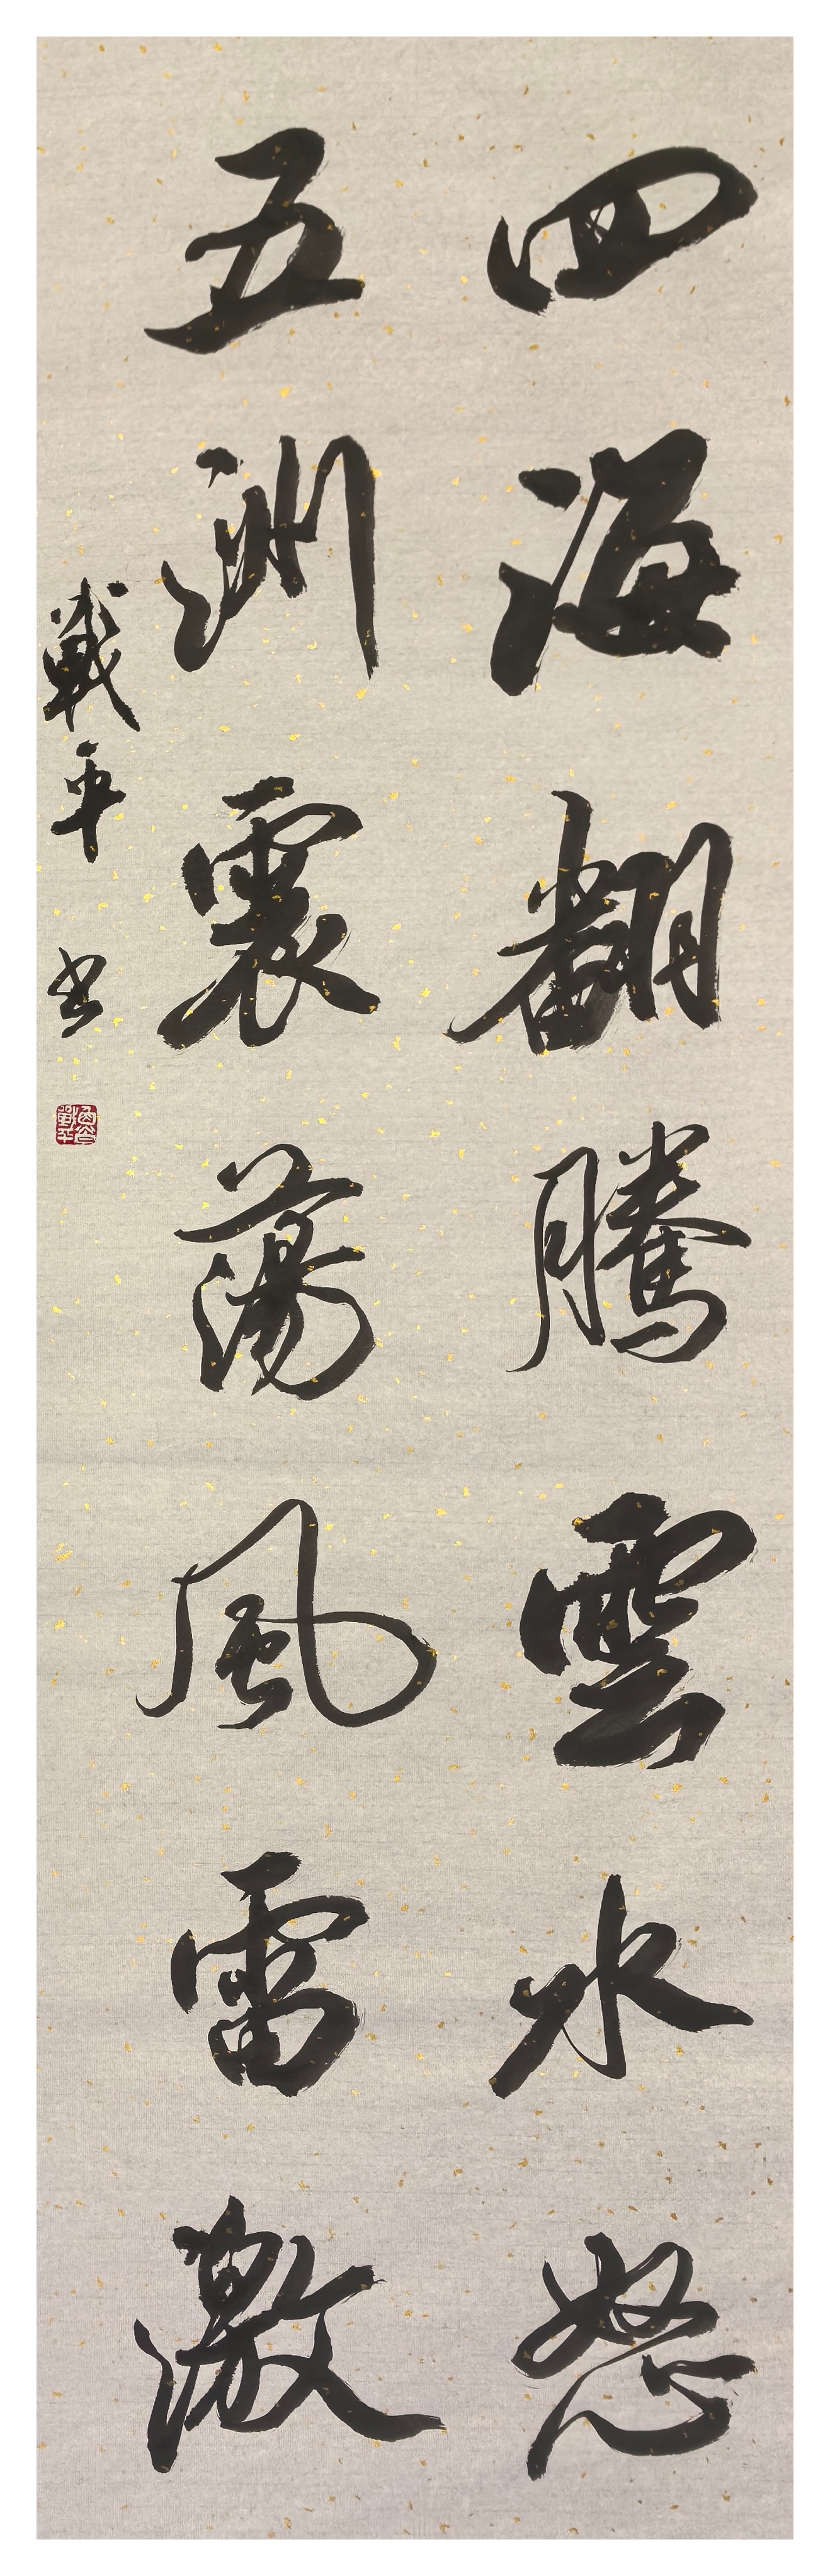 四海翻騰雲水怒
五洲震蕩風雷激
戰平 书